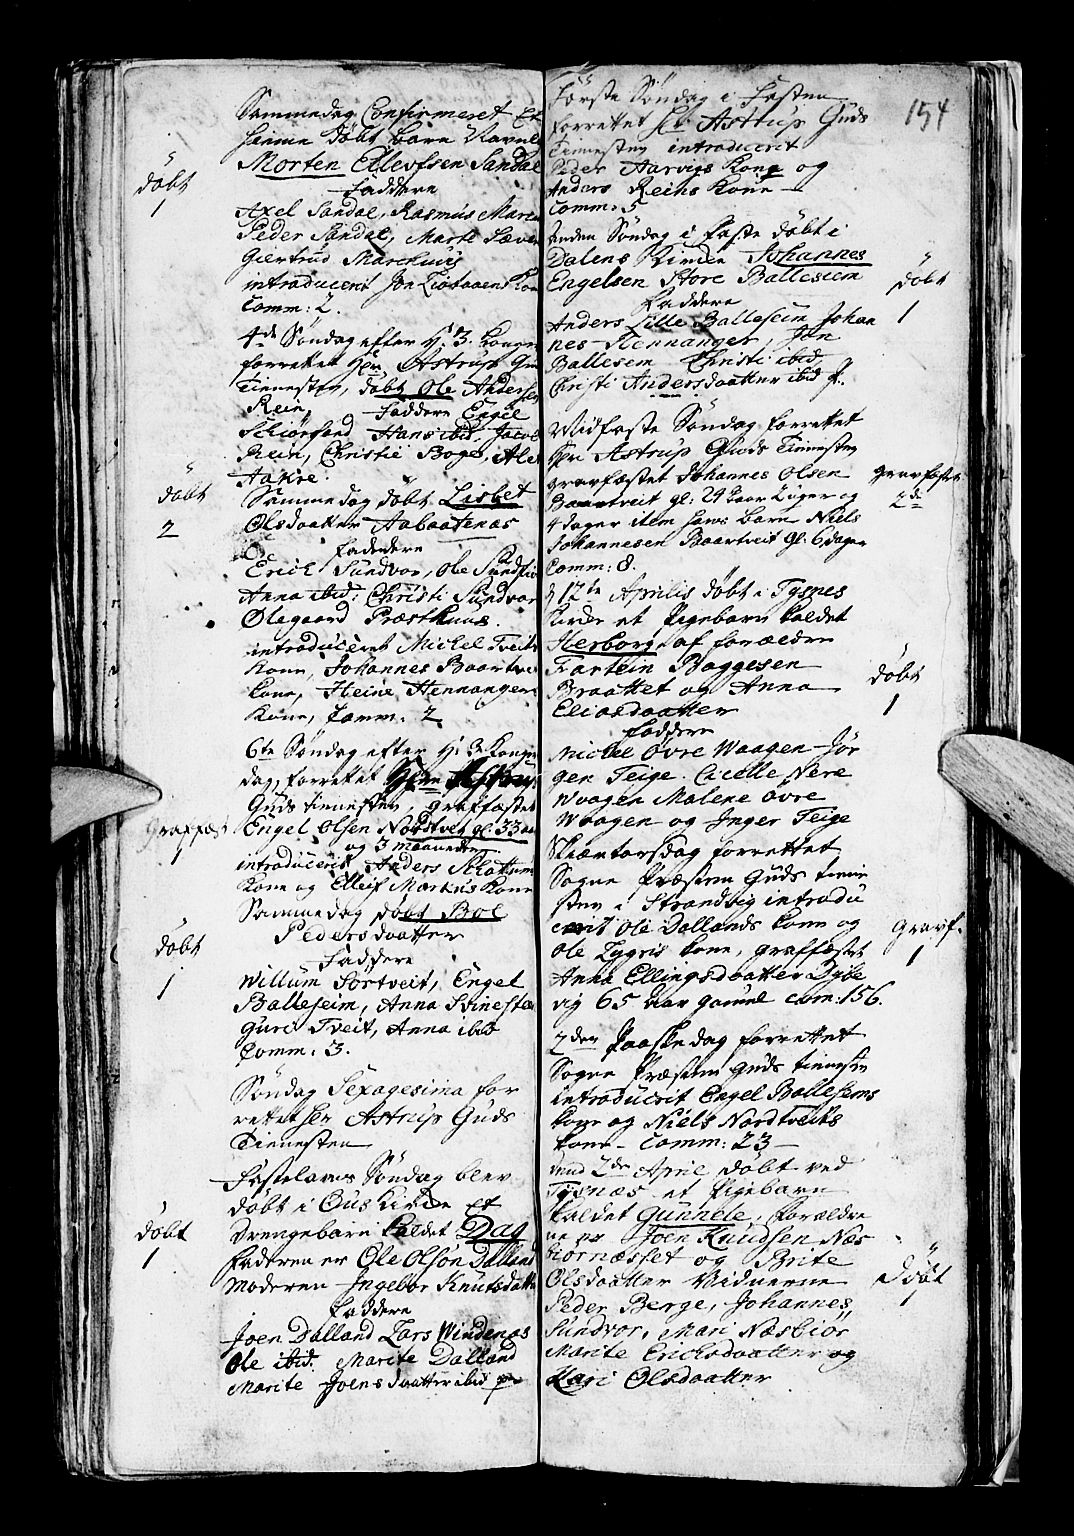 Sammedag Confirmeret Et
hiemme døbt barn Navnlig
Morten Ellevfsen Sandal
døbt
1
Faddere
Axel Sandal, Rasmus Marc
Peder Sandal, Marte Sæve
Giertrud Marchuus
introduceret Jon Kone
Comm: 2.
4de Søndag efter H. 3. Konge
forrettet Hr. Astrup Gu
Tienesten, døbt Ole Anders
Rein, Faddere Engel
Schiørsand Hans ibid. Jacob
Rein, Christie Boge, Ale
Aakre.
døbt
2
Samme dag døbt Lisbet
Olsdaatter Aabaatenæs
Faddere
Erich Sundvor, Ole Sundfio
Anna ibid: Christi Sundvor
Olagaard Præsthuus.
introduceret Michel Tveits
Kone, Johannes Baartve
Kone, Heine Hennanger
Kone, Comm: 2
6te Søndag efter H: 3 Konge
dag, forrettet Hrn Astrup
Guds tienesten, graffæstet
Graffæst
1
Engel Olsen Nordtvet gl: 33 aa
og 3 maaneder
introduceret Anders Slottum
Kone og Elleif Markus Kone
Sammedag døbt Boe
Pedersdaatter
døbt
1
Faddere
Willum Sortveit, Engel
Balleseim, Anna Svineste
Guri Tveit, Anna ibid
Comm: 3.
Søndag Sexagesima for
rettet Hr Astrup Guds
Tienesten
Fastelavns Søndag blev
døbt i Ous Kirke et
døbt
1
Drengebarn kaldet Dag
faderen er Ole Olsøn Dalland
moderen Ingebor Knutsdatte
Faddere
Joen Dalland Lars Windenæs
Ole ibid. Marite Dalland
Marite Joensdaatter ibid
154
Første Søndag i Fasten
forrettet Hr. Astrup Guds
Tienesten introduceret
Peder Aarvigs Kone og
Anders Reihs Kone
Comm: 5
Anden Søndag i Faste døbt i
Dalens Kirke Johannes
Engelsen Store Balleseim
døbt
1
Faddere
Anders Lille Balleseim Johan
nes Hennanger, Jon
Ballesem Christi ibid
Christi Andersdaatter ibid
Midfaste Søndag forrettet
Hr Astrup Guds Tienesten
gravfæstet Johannes Olsen
gravfæstet
2de
Baartveit gl: 24 aar Uger og
4 dager item hans barn Niels
Johannesen Baartveit gl: 6 dager
Comm: 8.
d 12te Aprilis døbt i Tysnes
Kirke et Pigebarn kaldet
Herborg af forældre
Fartein Baggesen
Braattet og Anna
Eliasdaatter
døbt
1
Faddere
Michel Øvre Waagen Jør
gen Teige. Cicelle Nere
Waagen Malene Øvre
Waagen og Inger Teige
Skiærtorsdag forrettet
Sogne Præsten Guds tiene
sten i Strandvig introdu
cerit Ole Dallands Kone og
Ole Lygris Kone, graffæstet
Gravf.
1
Anna Ellingsdaatter Dybe
vig 65 aar gamel com: 156.
2den Paaske dag forrettet
Sogne Præsten Guds tienesten
introducerit Engel Ballesems
Kone og Niels Nordtveits
Kone Comm: 23
dend 2de April døbt ved
Tysnæs et Pigebarn
Kaldet Gunnele, Forældre
ne er Joen Knudsen Næs
biornæsset og Brite
Olsdaatter Vidnerne
Døbt
1
Peder Berge, Johannes
Sundvor, Mari Næsbiør
Marite Erichsdaatter og
Kari Olsdaatter